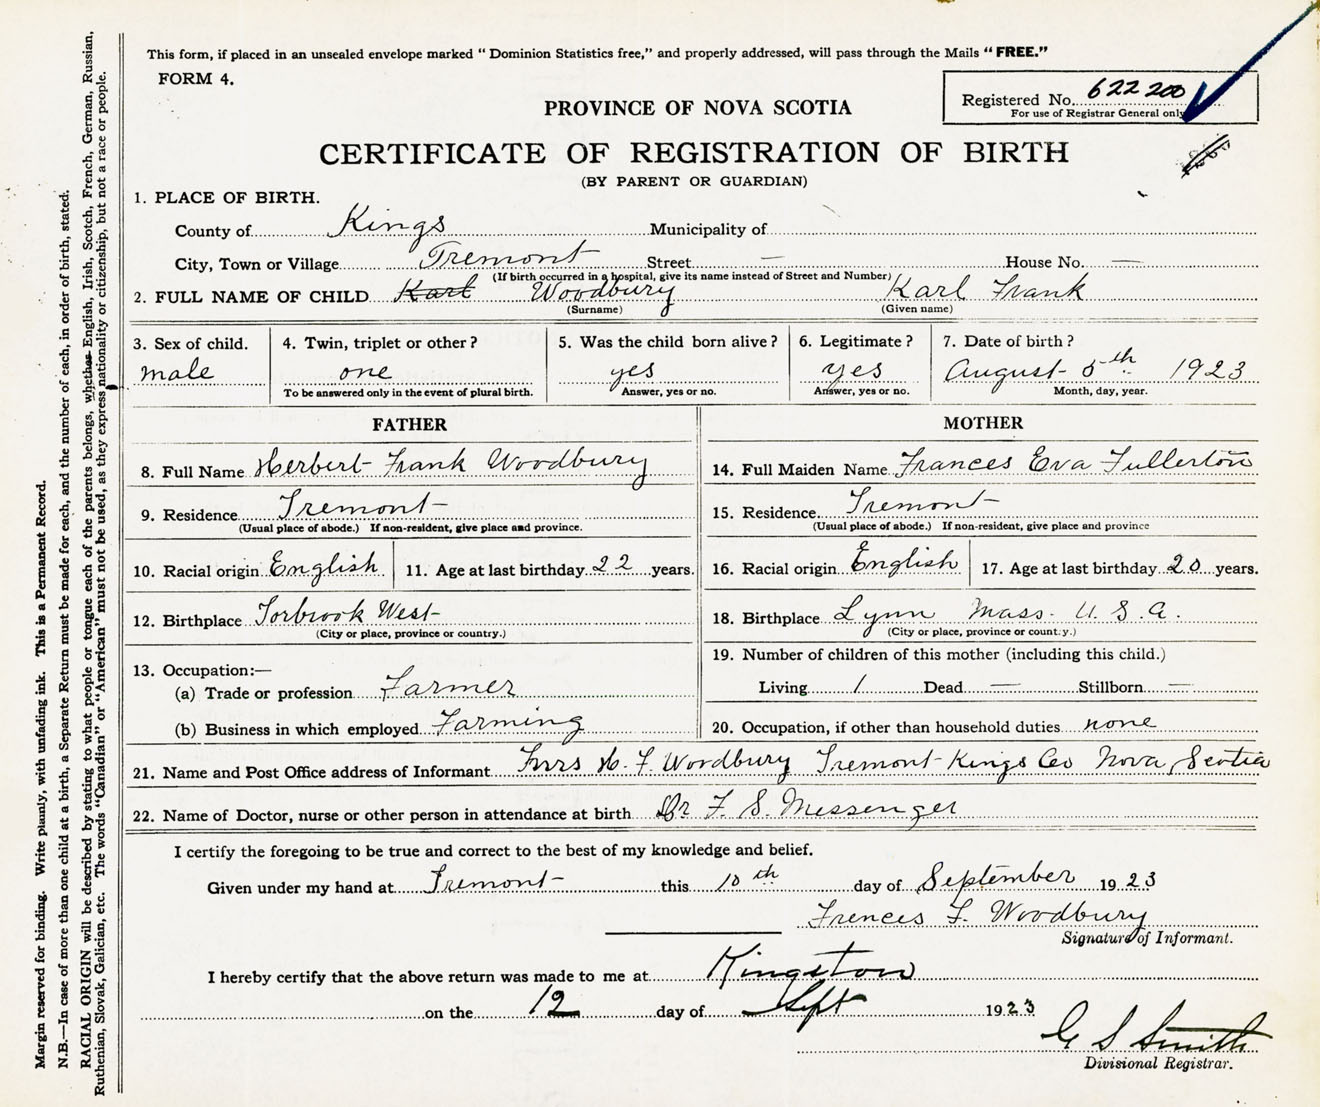 This form, if placed in an unsealed envelope marked “ Dominion Statistics free,” and properly addressed, will pass through the Mails “ FREE.”
FORM 4.
Registered No. 622 200
For use of Registrar General only
PROVINCE OF NOVA SCOTIA
CERTIFICATE OF REGISTRATION OF BIRTH
(BY PARENT OR GUARDIAN)
1. PLACE OF BIRTH.
County of Kings Municipality of
City, Town or Village Tremont Street — House No. —
(If birth occurred in a hospital, give its name instead of Street and Number)
2. FULL NAME OF CHILD Karl Woodbury Karl Frank
(Surname) (Given name)
3. Sex of child. 4. Twin, triplet or other ? 5. Was the child born alive ? 6. Legitimate ? 7. Date of birth ?
male one yes yes August 5th 1923
To be answered only in the event of plural birth. Answer, yes or no. Answer, yes or no. Month, day, year.
FATHER
8. Full Name Herbert Frank Woodbury
9. Residence Tremont
(Usual place of abode.) If non-resident, give place and province.
10. Racial origin English 11. Age at last birthday 22 years.
12. Birthplace Torbrook West
(City or place, province or country.)
13. Occupation:—
(a) Trade or profession Farmer
(b) Business in which employed Farming
MOTHER
14. Full Maiden Name Frances Eva Fullerton
15. Residence Tremont
(Usual place of abode.) If non-resident, give place and province
16. Racial origin English 17. Age at last birthday 20 years.
18. Birthplace Lynn Mass. U. S. A.
(City or place, province or country.)
19. Number of children of this mother (including this child.)
Living 1 Dead — Stillborn —
20. Occupation, if other than household duties none
21. Name and Post Office address of Informant Mrs H. F. Woodbury Tremont Kings Co Nova Scotia
22. Name of Doctor, nurse or other person in attendance at birth Dr F. S. Messenger
I certify the foregoing to be true and correct to the best of my knowledge and belief.
Given under my hand at Tremont this 10th day of September 1923
Frences F. Woodbury
Signature of Informant.
I hereby certify that the above return was made to me at Kingston
on the 12 day of Sept 1923
G S Smith
Divisional Registrar.
Margin reserved for binding. Write plainly, with unfading ink. This is a Permanent Record.
N.B.—In case of more than one child at a birth, a Separate Return must be made for each, and the number of each, in order of birth, stated.
RACIAL ORIGIN will be described by stating to what people or tongue each of the parents belongs, whether English, Irish, Scotch, French, German, Russian,
Ruthenian, Slovak, Galician, etc. The words “Canadian” or “American” must not be used, as they express nationality or citizenship, but not a race or people.